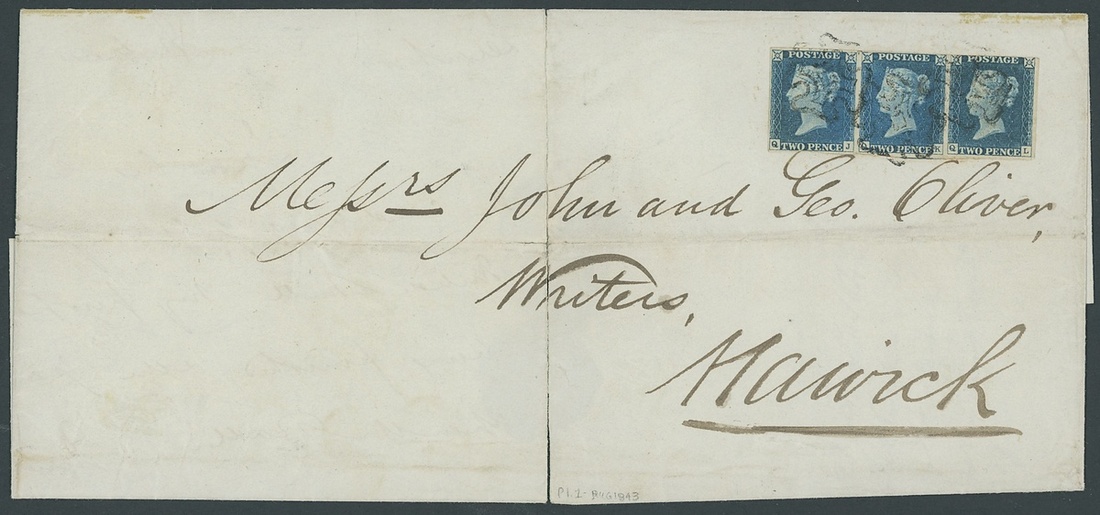 POSTAGE POSTAGE POSTAGE
TWO PENCE TWO PENCE TWO PENCE
Q J Q K Q L
Messrs John and Geo. Oliver,
Writers,
Hawick